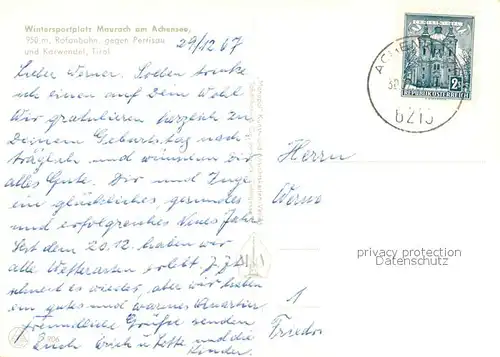 Wintersportplatz Maurach am Achensee,
950 m, Rofanbahn, gegen Pertisau
und Karwendel, Tirol
29/12 67
Lieber Werner. Soeben trinke
ich einen auf Dein Wohl
Wir gratulieren herzlich zu
Deinem Geburtstag nach-
träglich und wünschen Dir
alles Gute. Dir und Inge
ein glückliches, gesundes
und erfolgreiches Neues Jahr.
Seit dem 20.12. haben wir
alle Wetterarten erlebt. z.Zt
schneit es wieder, aber wir haben
ein gutes und warmes Quartier
Freundliche Grüße senden
Euch Erich u Lotte und die
Kinder.
REPUBLIK ÖSTERREICH
6215
Herrn
Werne
1
privacy protection
Datenschutz